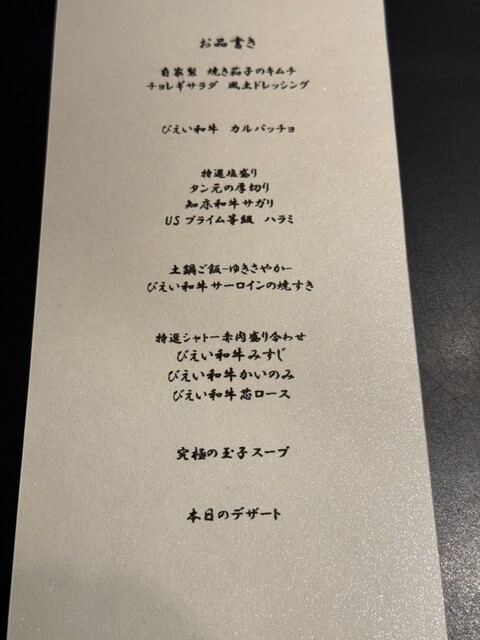 お品書き
自家製 焼き茄子のキムチ
チョレギサラダ 風土ドレッシング
びえい和牛 カルパッチョ
特選塩盛り
タン元の厚切り
知床和牛サガリ
USプライム等級 ハラミ
土鍋ご飯-ゆきさやか-
びえい和牛サーロインの焼すき
特選シャトー赤肉盛り合わせ
びえい和牛みすじ
びえい和牛かいのみ
びえい和牛芯ロース
究極の玉子スープ
本日のデザート